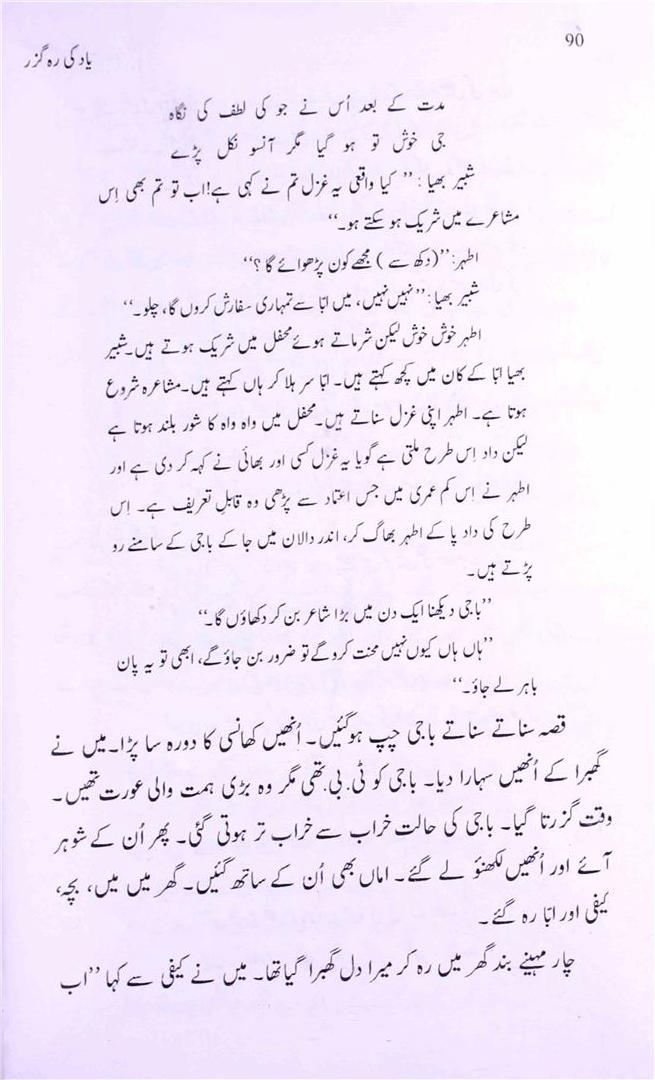 90
یاد کی رہ گزر
مدت کے بعد اُس نے جو کی لطف کی نگاہ
جی خوش تو ہو گیا مگر آنسو نکل پڑے
شبیر بھیا: ’’ کیا واقعی یہ غزل تم نے کہی ہے! اب تو تم بھی اِس
مشاعرے میں شریک ہو سکتے ہو۔‘‘
اطہر: ’’(دکھ سے) مجھے کون پڑھوائے گا؟‘‘
شبیر بھیا: ’’نہیں نہیں، میں ابّا سے تمہاری سفارش کروں گا، چلو۔‘‘
اطہر خوش خوش لیکن شرماتے ہوئے محفل میں شریک ہوتے ہیں۔ شبیر
بھیا ابّا کے کان میں کچھ کہتے ہیں۔ ابّا سر ہلا کر ہاں کہتے ہیں۔ مشاعرہ شروع
ہوتا ہے۔ اطہر اپنی غزل سناتے ہیں۔ محفل میں واہ واہ کا شور بلند ہوتا ہے
لیکن داد اِس طرح ملتی ہے گویا یہ غزل کسی اور بھائی نے کہہ کر دی ہے اور
اطہر نے اِس کم عمری میں جس اعتماد سے پڑھی وہ قابلِ تعریف ہے۔ اِس
طرح کی داد پا کے اطہر بھاگ کر، اندر دالان میں جا کے باجی کے سامنے رو
پڑتے ہیں۔
’’باجی دیکھنا ایک دن میں بڑا شاعر بن کر دکھاؤں گا۔‘‘
’’ہاں ہاں کیوں نہیں محنت کرو گے تو ضرور بن جاؤ گے، ابھی تو یہ پان
باہر لے جاؤ۔‘‘
قصہ سناتے سناتے باجی چپ ہوگئیں۔ اُنھیں کھانسی کا دورہ سا پڑا۔ میں نے
گھبرا کے اُنھیں سہارا دیا۔ باجی کو ٹی.بی.تھی مگر وہ بڑی ہمت والی عورت تھیں۔
وقت گزرتا گیا۔ باجی کی حالت خراب سے خراب تر ہوتی گئی۔ پھر اُن کے شوہر
آئے اور اُنھیں لکھنؤ لے گئے۔ اماں بھی اُن کے ساتھ گئیں۔ گھر میں میں، بچہ،
کیفی اور ابّا رہ گئے۔
چار مہینے بند گھر میں رہ کر میرا دل گھبرا گیا تھا۔ میں نے کیفی سے کہا ’’اب